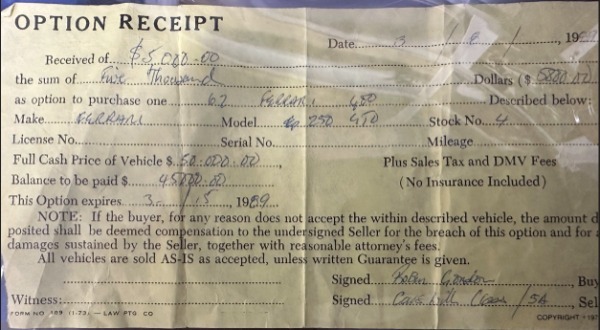 OPTION RECEIPT
Date 3 / 8 / , 1989
Received of $5,000.00
the sum of Five Thousand Dollars ($ 5000.00
as option to purchase one 62 Ferrari Described below:
Make FERRARI Model 250 Stock No. 4
License No. Serial No. Mileage
Full Cash Price of Vehicle $ 50.000.00, Plus Sales Tax and DMV Fees
Balance to be paid $ 45000.00 (No Insurance Included)
This Option expires 3 / 15 , 1989.
NOTE: If the buyer, for any reason does not accept the within described vehicle, the amount d
posited shall be deemed compensation to the undersigned Seller for the breach of this option and for
damages sustained by the Seller, together with reasonable attorney's fees.
All vehicles are sold AS-IS as accepted, unless written Guarantee is given.
Signed Robin Gordon, Buy
Witness: Signed Sel
FORM NO. 189 (1-73) — LAW PTG CO COPYRIGHT 197